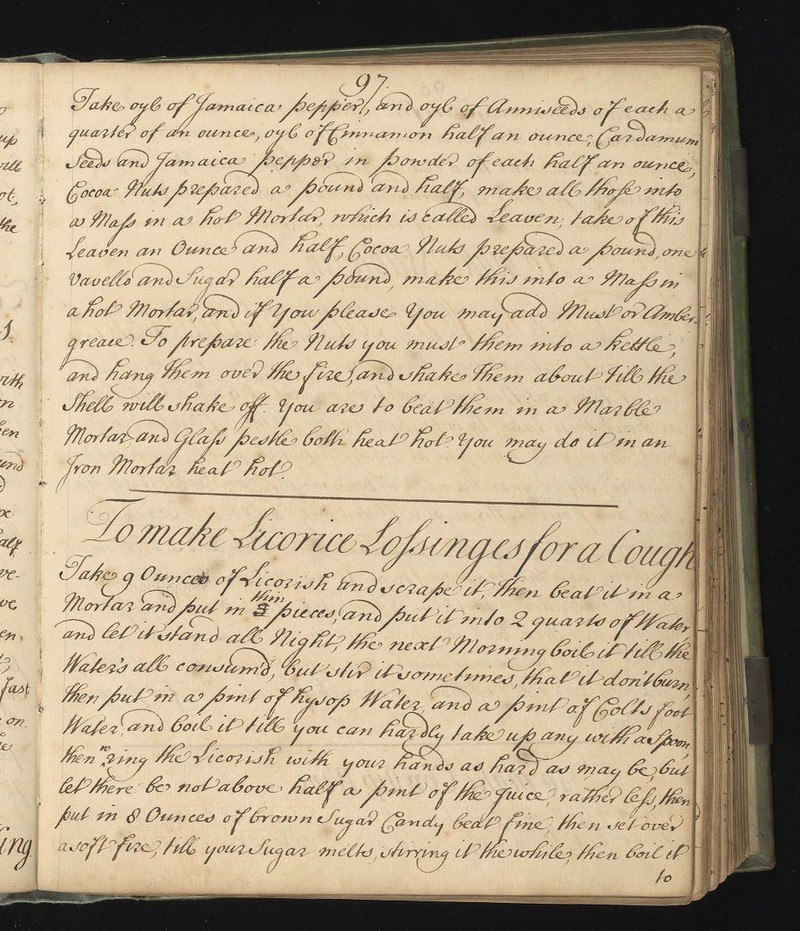 97
Take oyl of Jamaica pepper, and oyl of Anniseeds of each a
quarter of an ounce, oyl of Cinnamon half an ounce, Cardamum
seeds and Jamaica pepper in powder of each half an ounce,
Cocoa Nuts prepared a pound and half, make all those into
a Mass in a hot Mortar, which is called Leaven; take of this
Leaven an Ounce and half, Cocoa Nuts prepared a pound, one
vavello and Sugar half a pound, make this into a Mass in
a hot Mortar, and if You please You may add Must or Amber-
greace. To prepare the Nuts you must them into a kettle,
and hang them over the fire, and shake them about till the
Shell will shake off. You are to beat them in a Marble
Mortar and Glass pestle both heat hot. You may do it in an
Iron Mortar heat hot.
To make Licorice Lossinges for a Cough
Take 9 Ounces of Licorish and scrape it, then beat it in a
Mortar and put in thin pieces, and put it into 2 quarts of Water,
and let it stand all Night, the next Morning boil it till the
Water's all consum'd, but stir it sometimes, that it don't burn,
then put in a pint of hysop Water, and a pint of Colts foot
Water, and boil it till you can hardly take up any with a Spoon,
then wring the Licorish with your hands as hard as may be, but
let there be not above half a pint of the Juice, rather less, then
put in 8 Ounces of brown Sugar Candy beat fine, then set over
a soft fire, till your Sugar melts, stirring it the while, then boil it
to
up
ot,
the
with
half
ve-
fast
on
ing